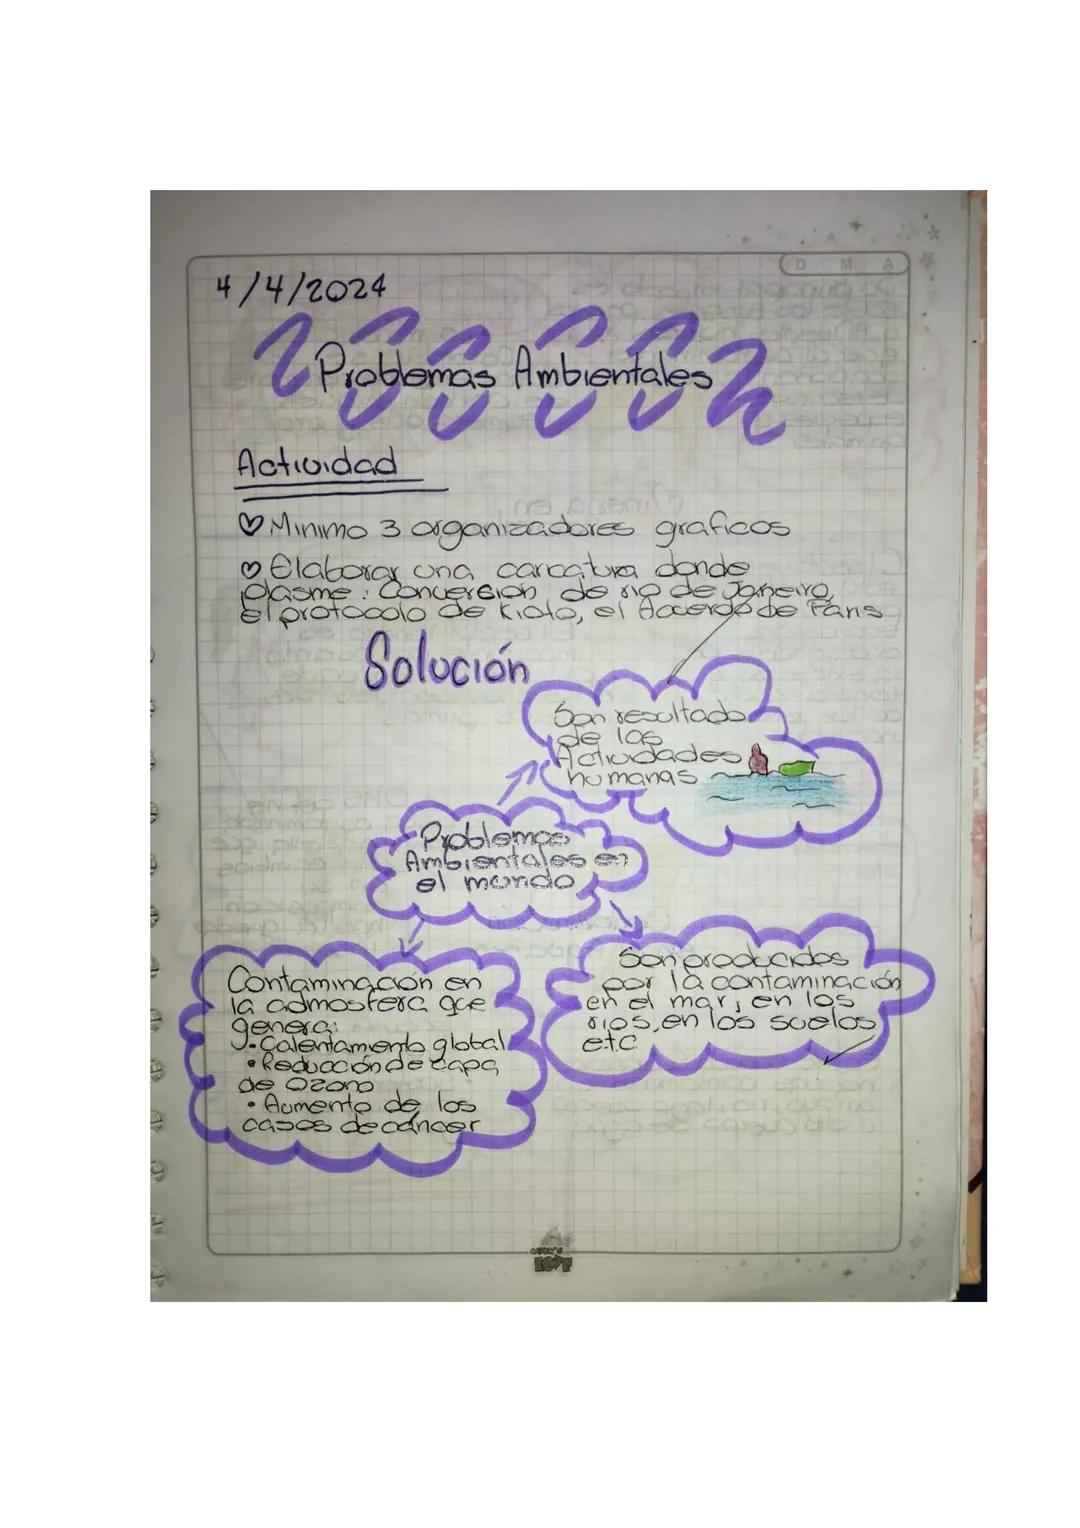 D M A
4/4/2024
Problemas Ambientales
Actividad
♡ Minimo 3 organizadores graficos
♡ Elaborar una caricatura donde
plasme: Conversión de rio de Janeiro,
El protocolo de Kioto, el Acuerdo de Paris
Solución
Son resultado
de las
Actividades
humanas
Problemas
Ambientales en
el mundo
Contaminación en
la admosfera que
genera:
• Calentamiento global
• Reducción de capa
de Ozono
• Aumento de los
casos de cáncer
Son producidos
por la contaminación
en el mar, en los
rios, en los suelos
etc
LOVE